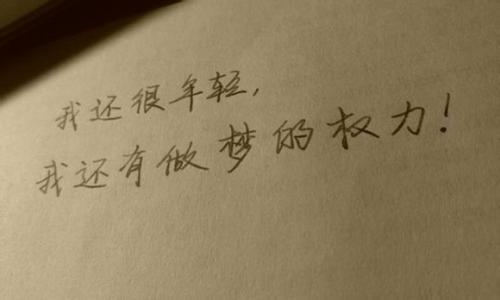 我还很年轻,
我还有做梦的权力!